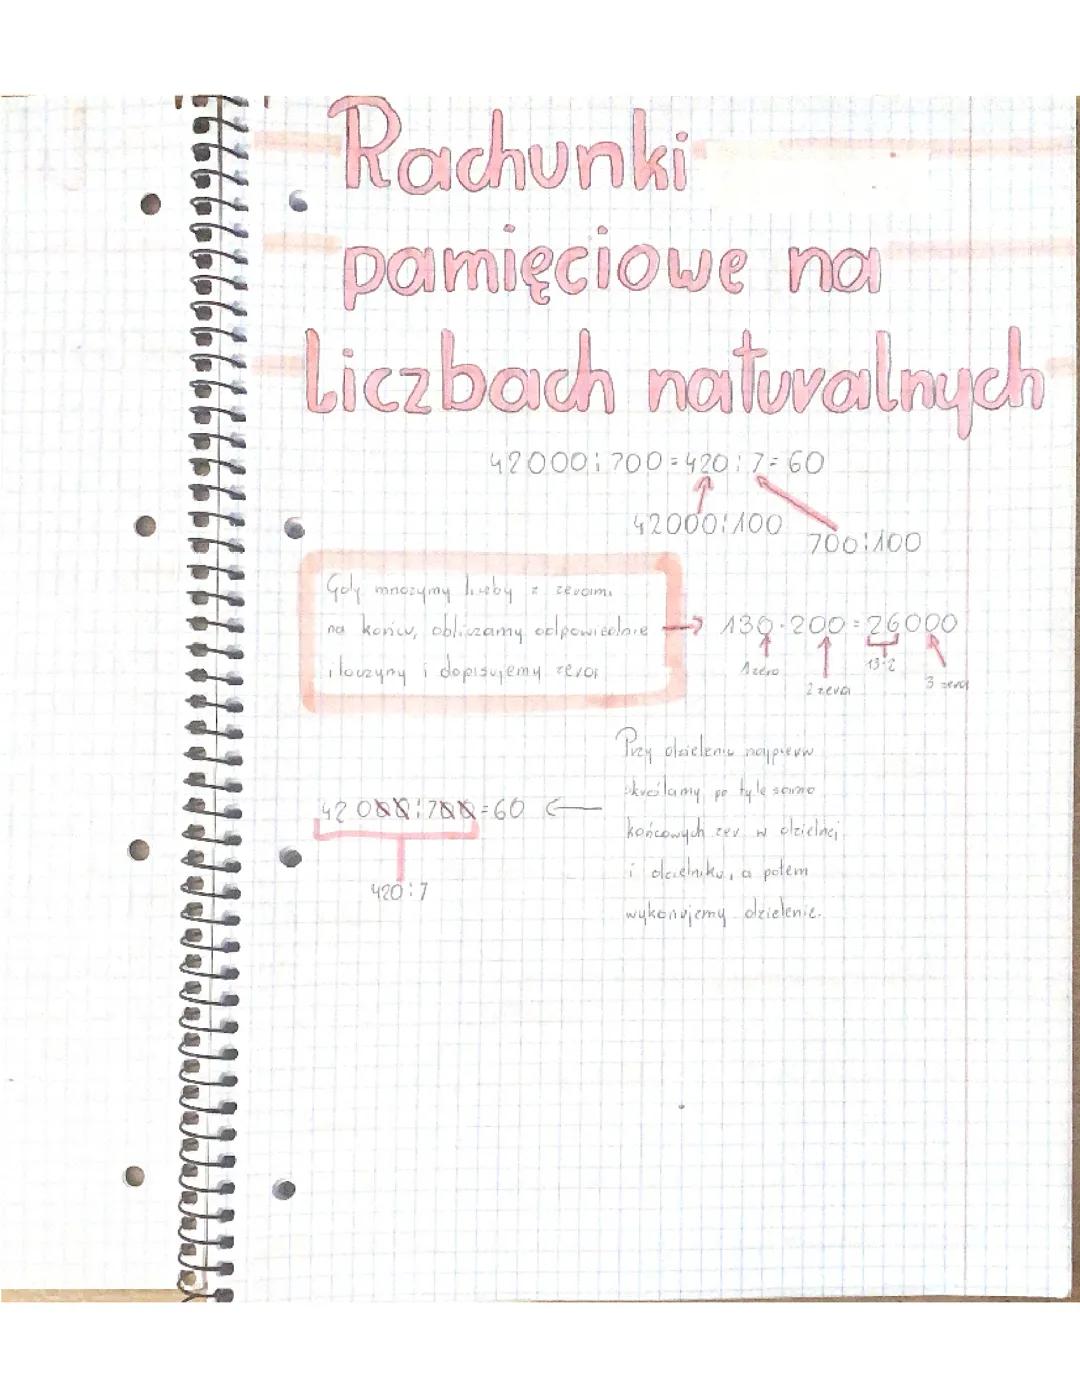 Rachunki
pamięciowe na
liczbach naturalnych
42000:700=420:7=60
42000:100
700:100
Gdy mnożymy liczby z zerami
na końcu, obliczamy odpowiednie
iloczyny i dopisujemy zera
130·200=26000
1 zero
2 zera
13·2
3 zera
Przy dzieleniu najpierw
skreślamy po tyle samo
końcowych zer w dzielnej
i dzielniku, a potem
wykonujemy dzielenie.
42000:700=60
420:7